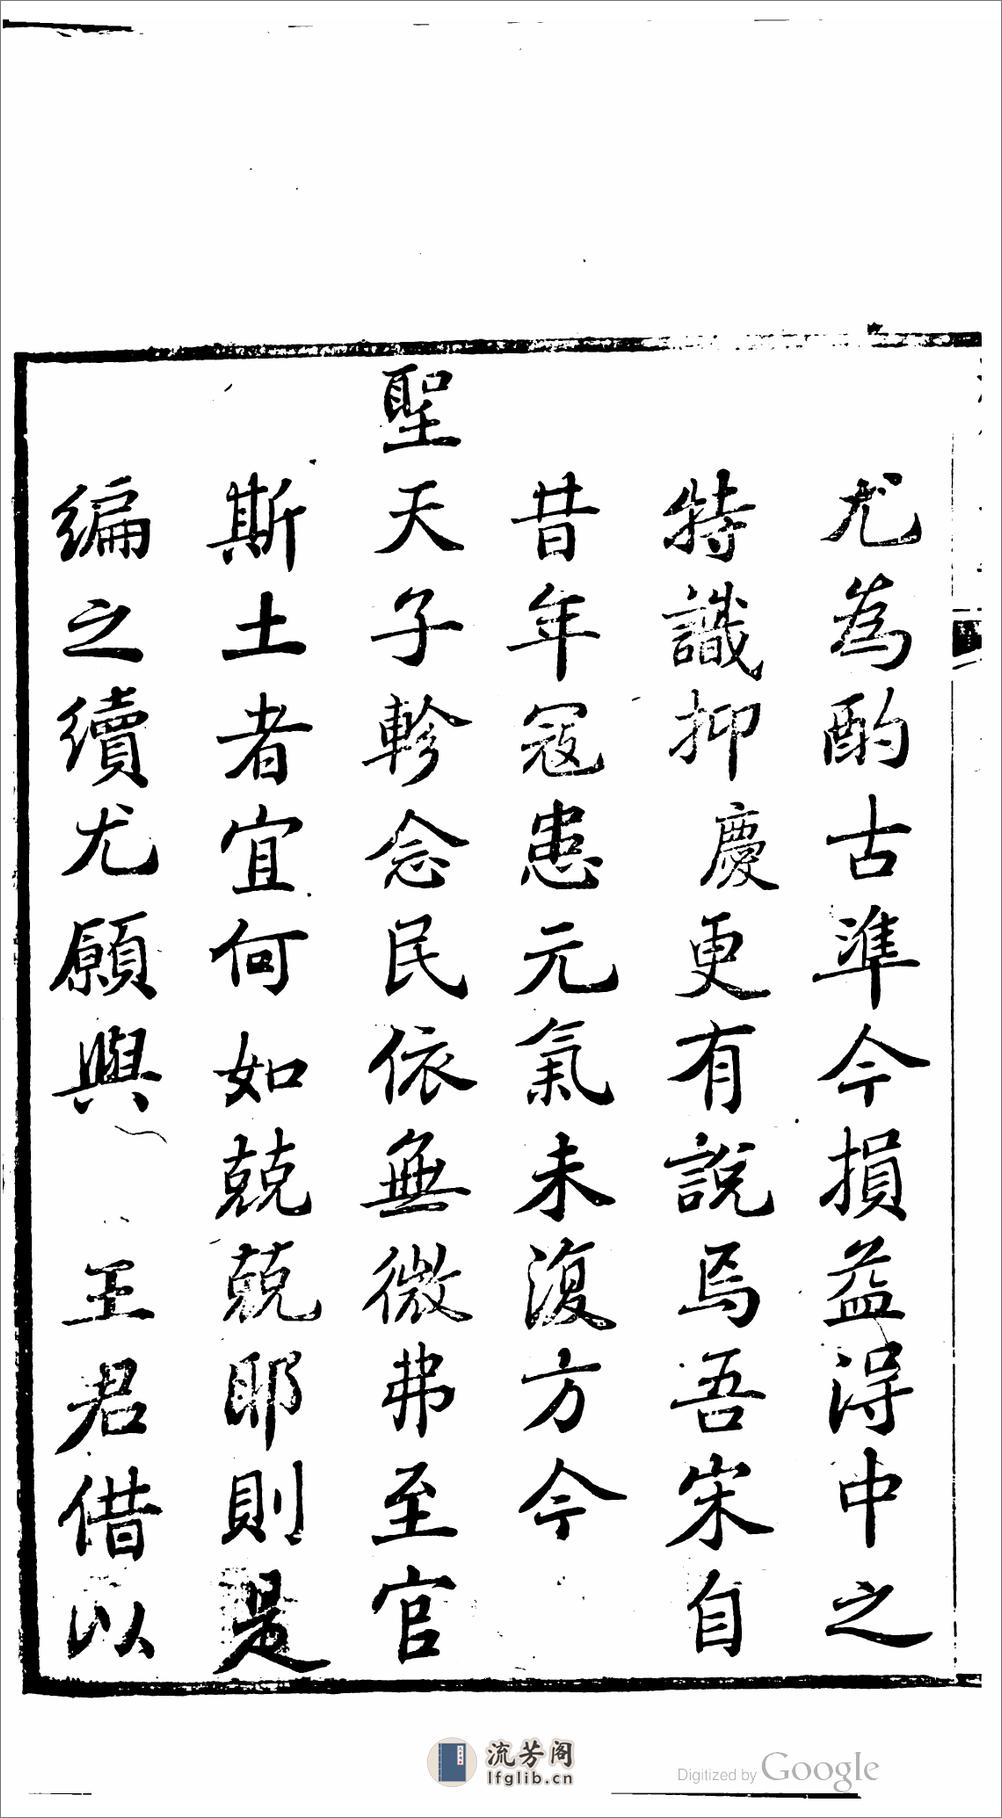 尤為酌古準今損益得中之
特識抑慶更有說焉吾宋自
昔年寇患元氣未復方今
聖天子軫念民依無微弗至官
斯土者宜何如兢兢耶則是
編之續尤願與王君借以
流芳阁
lfglib.cn
Digitized by Google